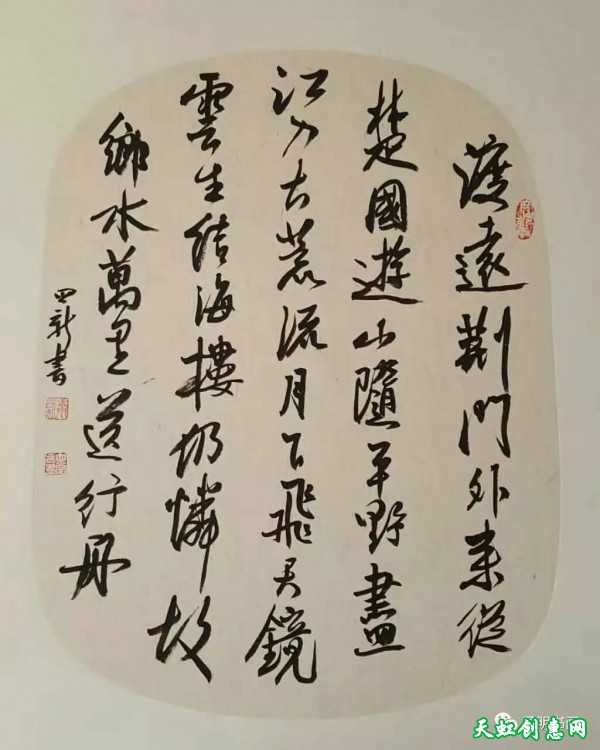 渡遠荊門外来從
楚國遊山隨平野盡
江入大荒流月下飛天鏡
雲生结海樓仍憐故
鄉水萬里送行舟
四新書
天虹创惠网